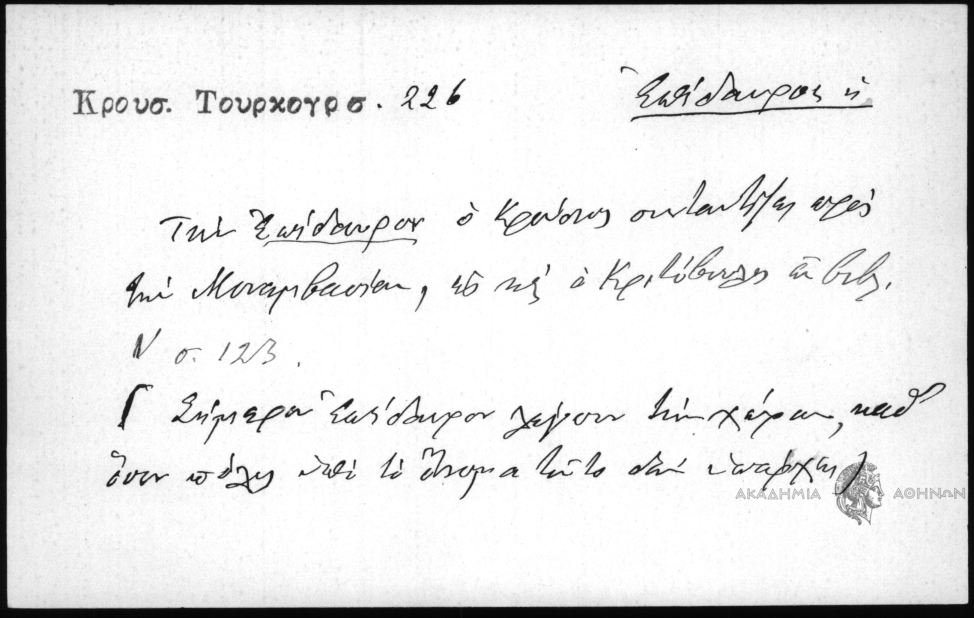 Κρουσ. Τουρκογρ σ. 226
Ἐπίδαυρος ἡ.
Τὴν Ἐπίδαυρον ὁ Κρούσιος συνταυτίζει πρὸς
τὴν Μονεμβασίαν, ὡς καὶ ὁ Κριτόβουλος ἐν βιβλ.
σ. 123.
[ Σήμερον Ἐπίδαυρον λέγουν τὴν χώραν, καθ'
ὅσον πόλις ὑπὸ τὸ ὄνομα τοῦτο δὲν ὑπάρχει]
ΑΚΑΔΗΜΙΑ ΑΘΗΝΩΝ